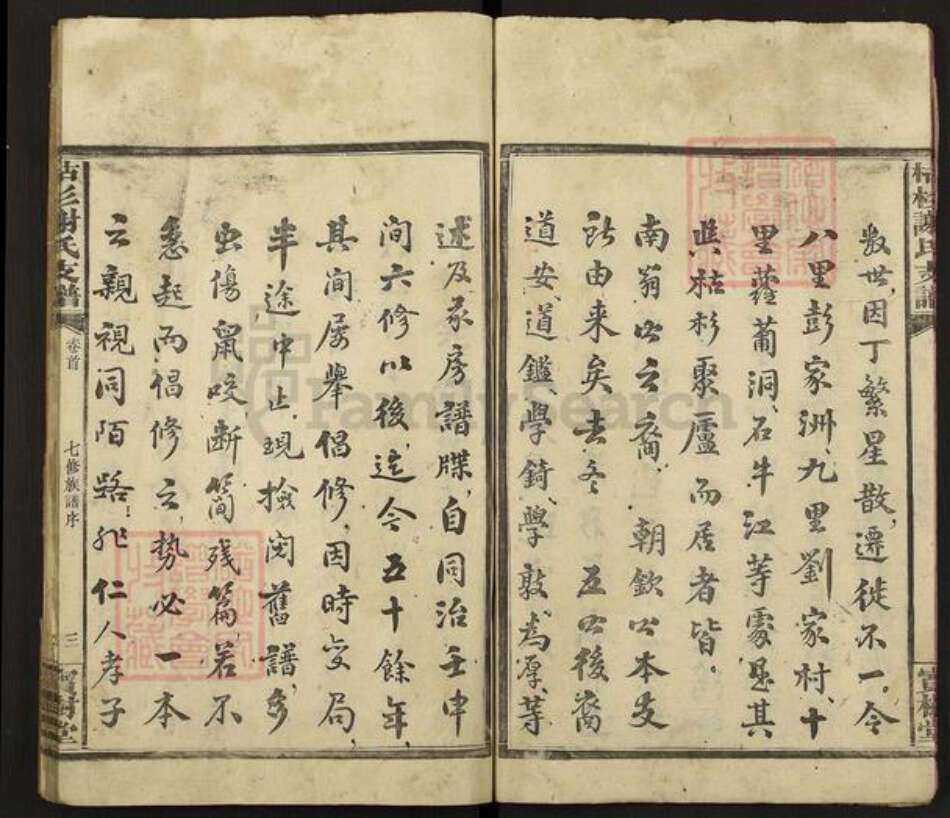 枯杉謝氏支譜
數世,因丁繁星散,遷徙不一。今
八里彭家洲、九里劉家村、十
里蘿蔔洞、石牛江等處,及其
與枯杉聚廬而居者,皆。
南翁公之裔、 朝欽公本支
所由来矣。去冬五公後裔
道安、道鑑、學錡、學敦、為厚等
寶樹堂
述及家房譜牒,自同治壬申
间六修以後,迄今五十餘年,
其间屡舉倡修,因時变局,
半途中止。現撿閱舊譜,多
虫傷鼠咬,断简残篇,若不
急起而倡修之,势必一本
之親視同陌路!非仁人孝子
枯杉謝氏支譜
卷首
七修族譜序
三
寶樹堂
FamilySearch